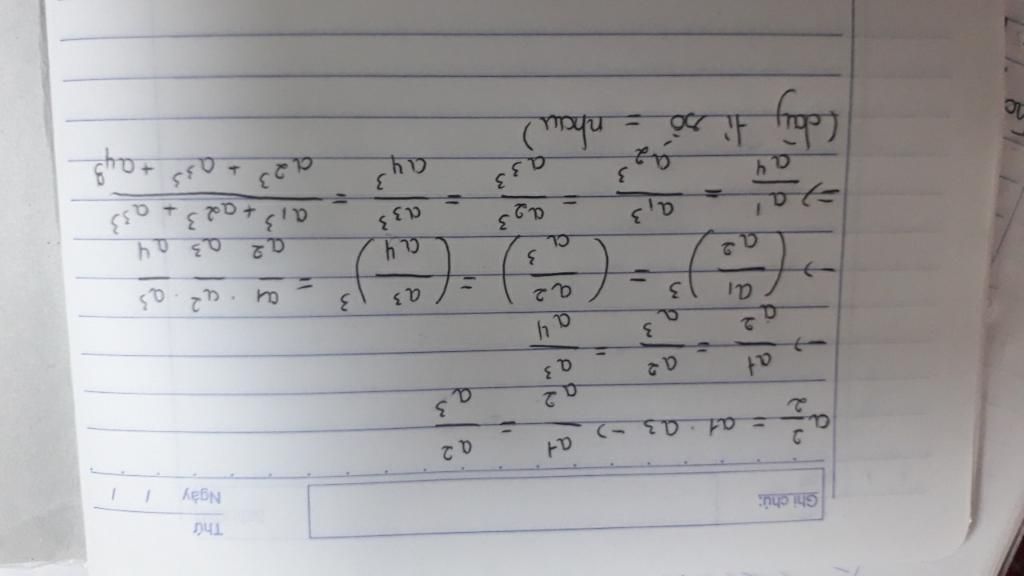 Thứ
Ngày / /
Ghi chú:
a₂² = a1 . a3 → a1/a2 = a2/a3
→ a1/a2 = a2/a3 = a3/a4
→ (a1/a2)³ = (a2/a3)³ = (a3/a4)³ = a1/a2 . a2/a3 . a3/a4
=> a1/a4 = a1³/a2³ = a2³/a3³ = a3³/a4³ = (a1³ + a2³ + a3³)/(a2³ + a3³ + a4³)
(dãy tỉ số = nhau)